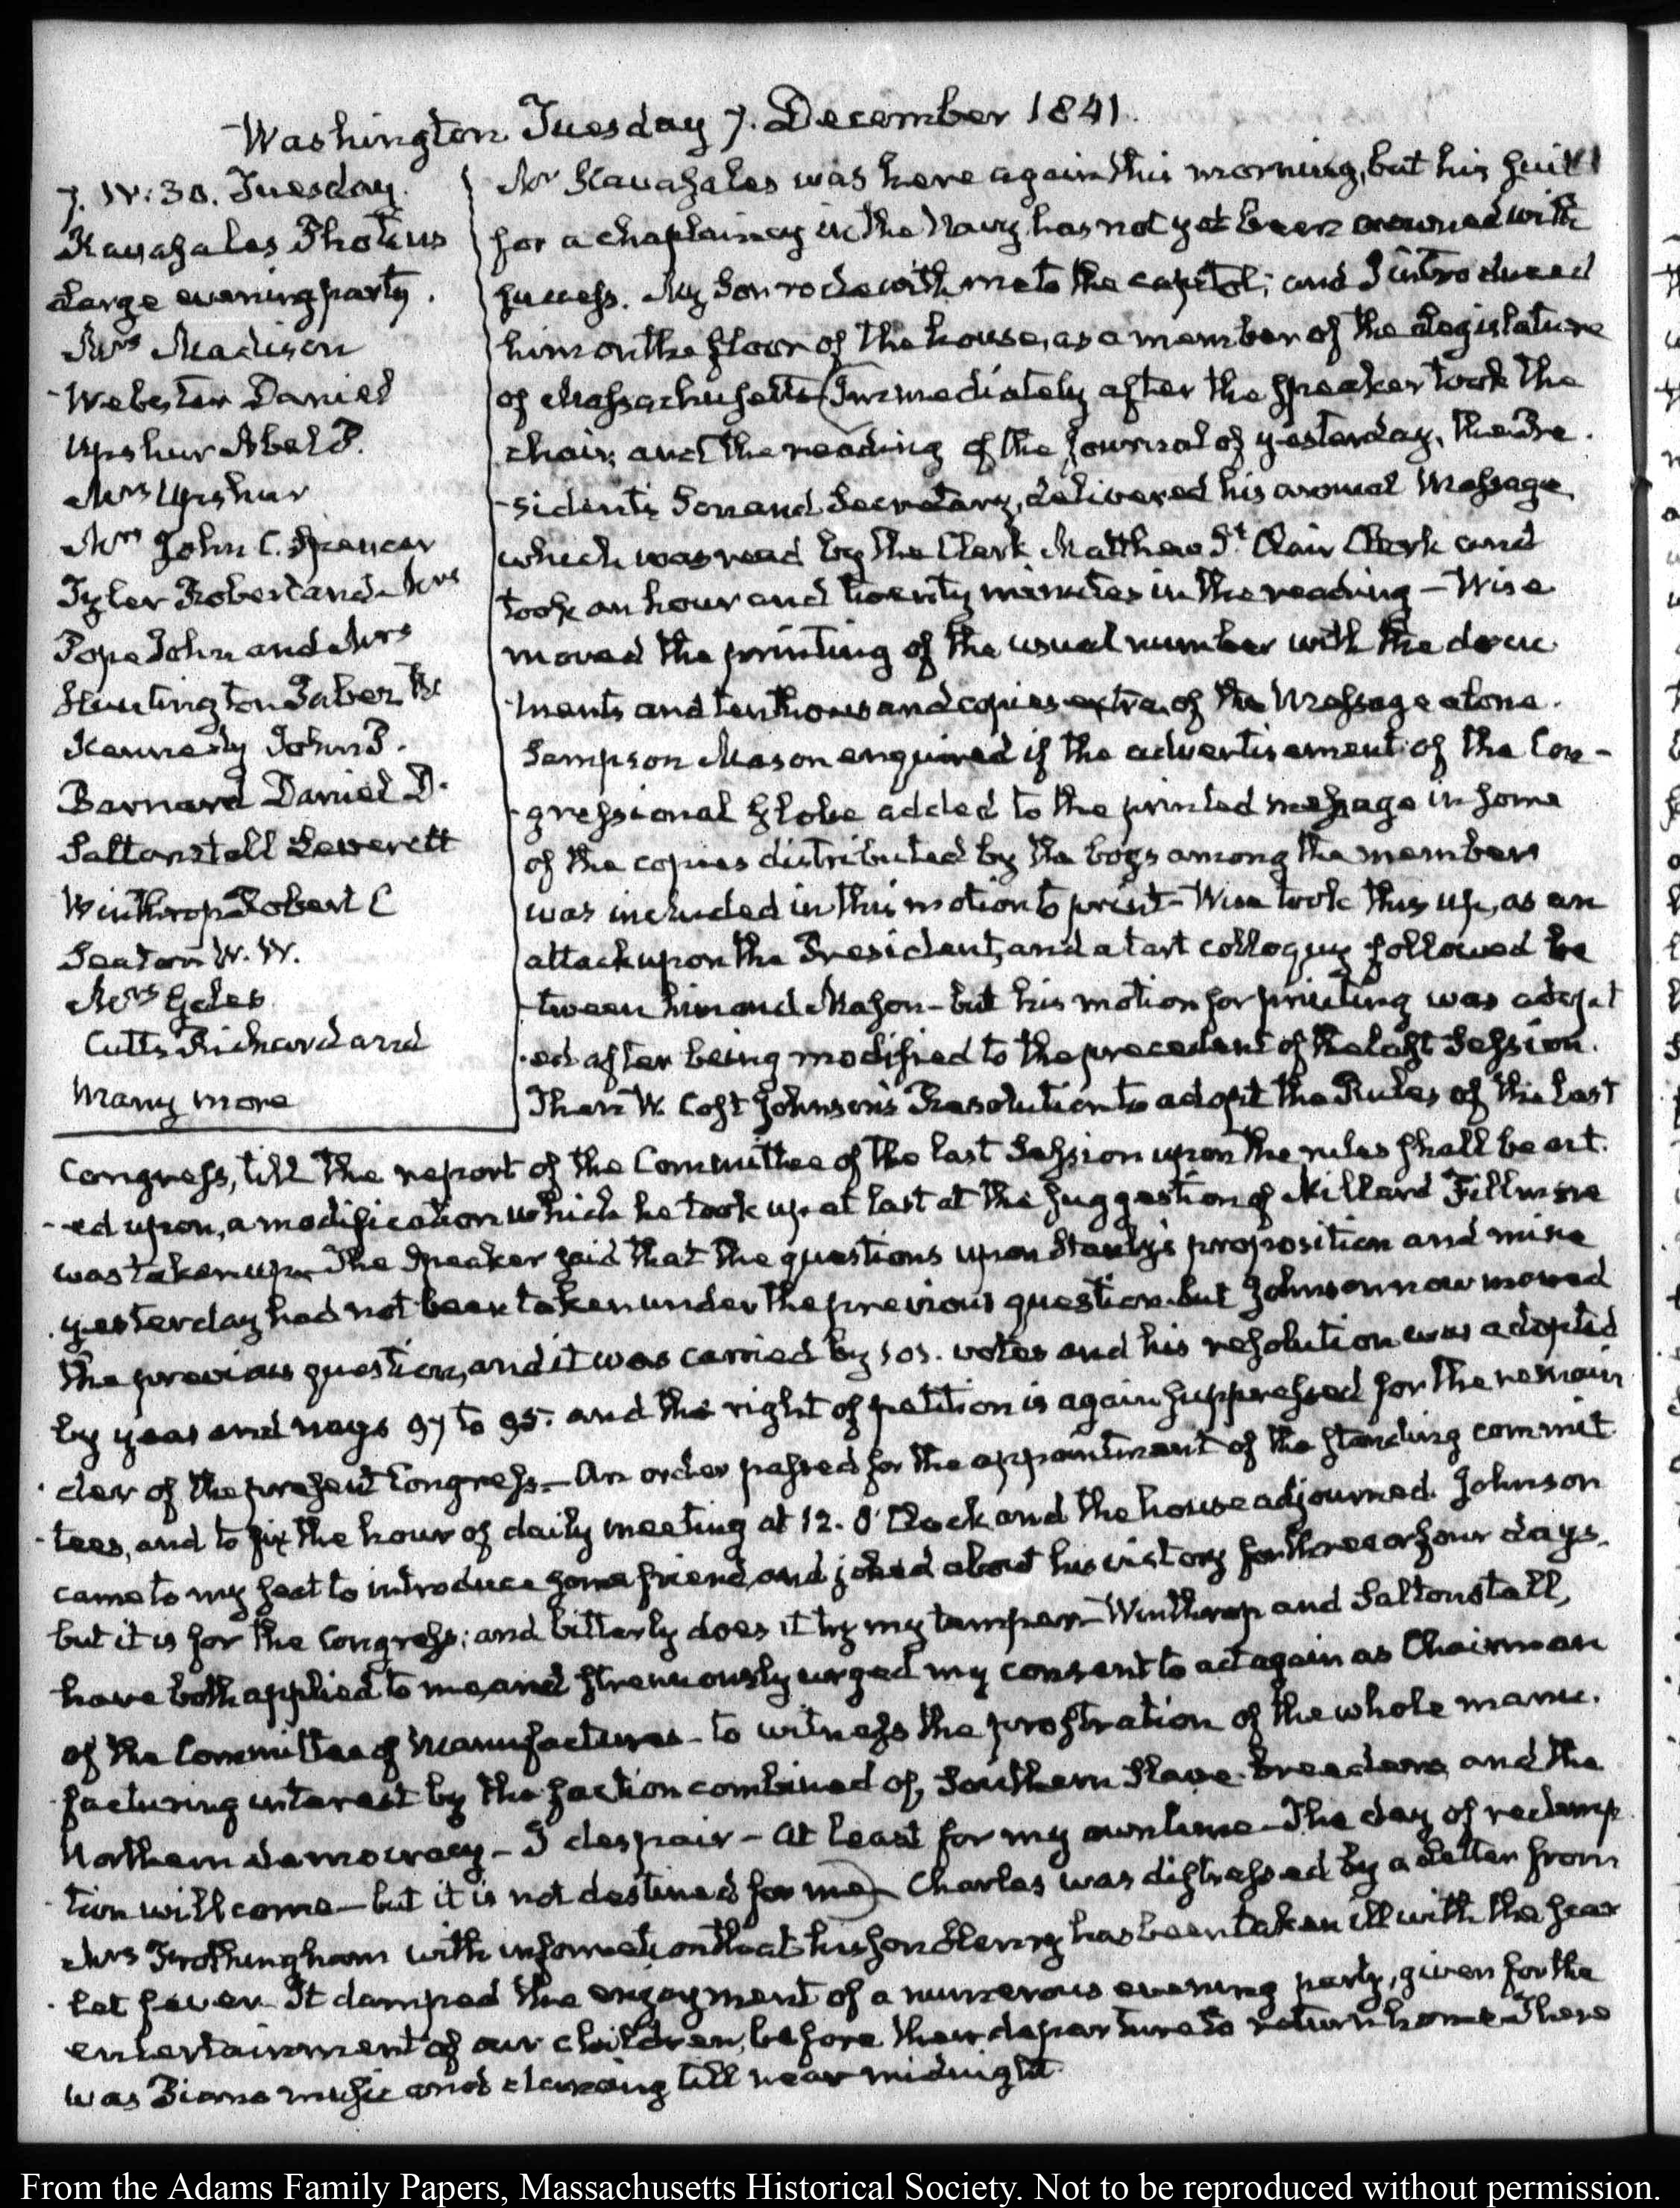 Washington Tuesday 7. December 1841.
7. IV:30. Tuesday.
Kavasales Photius
Large evening party.
Mrs Madison
Webster Daniel
Upshur Abel P.
Mrs Upshur
Mrs John C. Spencer
Tyler Robert and Mrs
Pope John and Mrs
Huntington Jabez W
Kennedy John P.
Barnard Daniel D.
Saltonstall Leverett
Winthrop Robert C
Seaton W. W.
Mrs Gales
Cutts Richard and
many more
Mr Kavasales was here again this morning, but his suit
for a chaplaincy in the Navy has not yet been crowned with
success. My Son rode with me to the capitol; and I introduced
him on the floor of the house, as a member of the Legislature
of Massachusetts (Immediately after the Speaker took the
chair, and the reading of the journal of yesterday, the Pre-
-sident's Son and Secretary, delivered his annual Message
which was read by the Clerk Matthew St Clair Clark and
took an hour and twenty minutes in the reading – Wise
moved the printing of the usual number with the docu
-ments and ten thousand copies extra of the Message alone.
Sampson Mason enquired if the advertisement of the Con-
-gressional Globe added to the printed message in some
of the copies distributed by the boys among the members
was included in this motion to print – Wise took this up, as an
attack upon the President, and a tart colloquy followed be
-tween him and Mason – but his motion for printing was adopt
-ed after being modified to the precedent of the last Session.
Then W. Cost Johnson's Resolution to adopt the Rules of the last
Congress, till the report of the Committee of the last Session upon the rules shall be act-
-ed upon, a modification which he took up at last at the suggestion of Millard Fillmore
was taken up. The Speaker said that the questions upon Stanly's proposition and mine
yesterday had not been taken under the previous question but Johnson now moved
the previous question, and it was carried by 101. votes and his resolution was adopted
by yeas and nays 97 to 95. and the right of petition is again suppressed for the remain
-der of the present Congress – An order passed for the appointment of the standing commit
-tees, and to fix the hour of daily meeting at 12. O'Clock and the house adjourned. Johnson
came to my seat to introduce some friend, and joked about his victory for three or four days.
but it is for the Congress; and bitterly does it try my temper – Winthrop and Saltonstall,
have both applied to me, and strenuously urged my consent to act again as Chairman
of the Committee of Manufactures – to witness the prostration of the whole manu-
facturing interest by the faction combined of, Southern Slave-breeders, and the
Northern democracy – I despair – at least for my own time – The day of redemp
-tion will come – but it is not destined for me) – Charles was distressed by a Letter from
Mrs Frothingham with information that his son Henry has been taken ill with the scar
-let fever. It damped the enjoyment of a numerous evening party, given for the
entertainment of our children, before their departure to return home – There
was Piano music and dancing till near midnight
From the Adams Family Papers, Massachusetts Historical Society. Not to be reproduced without permission.